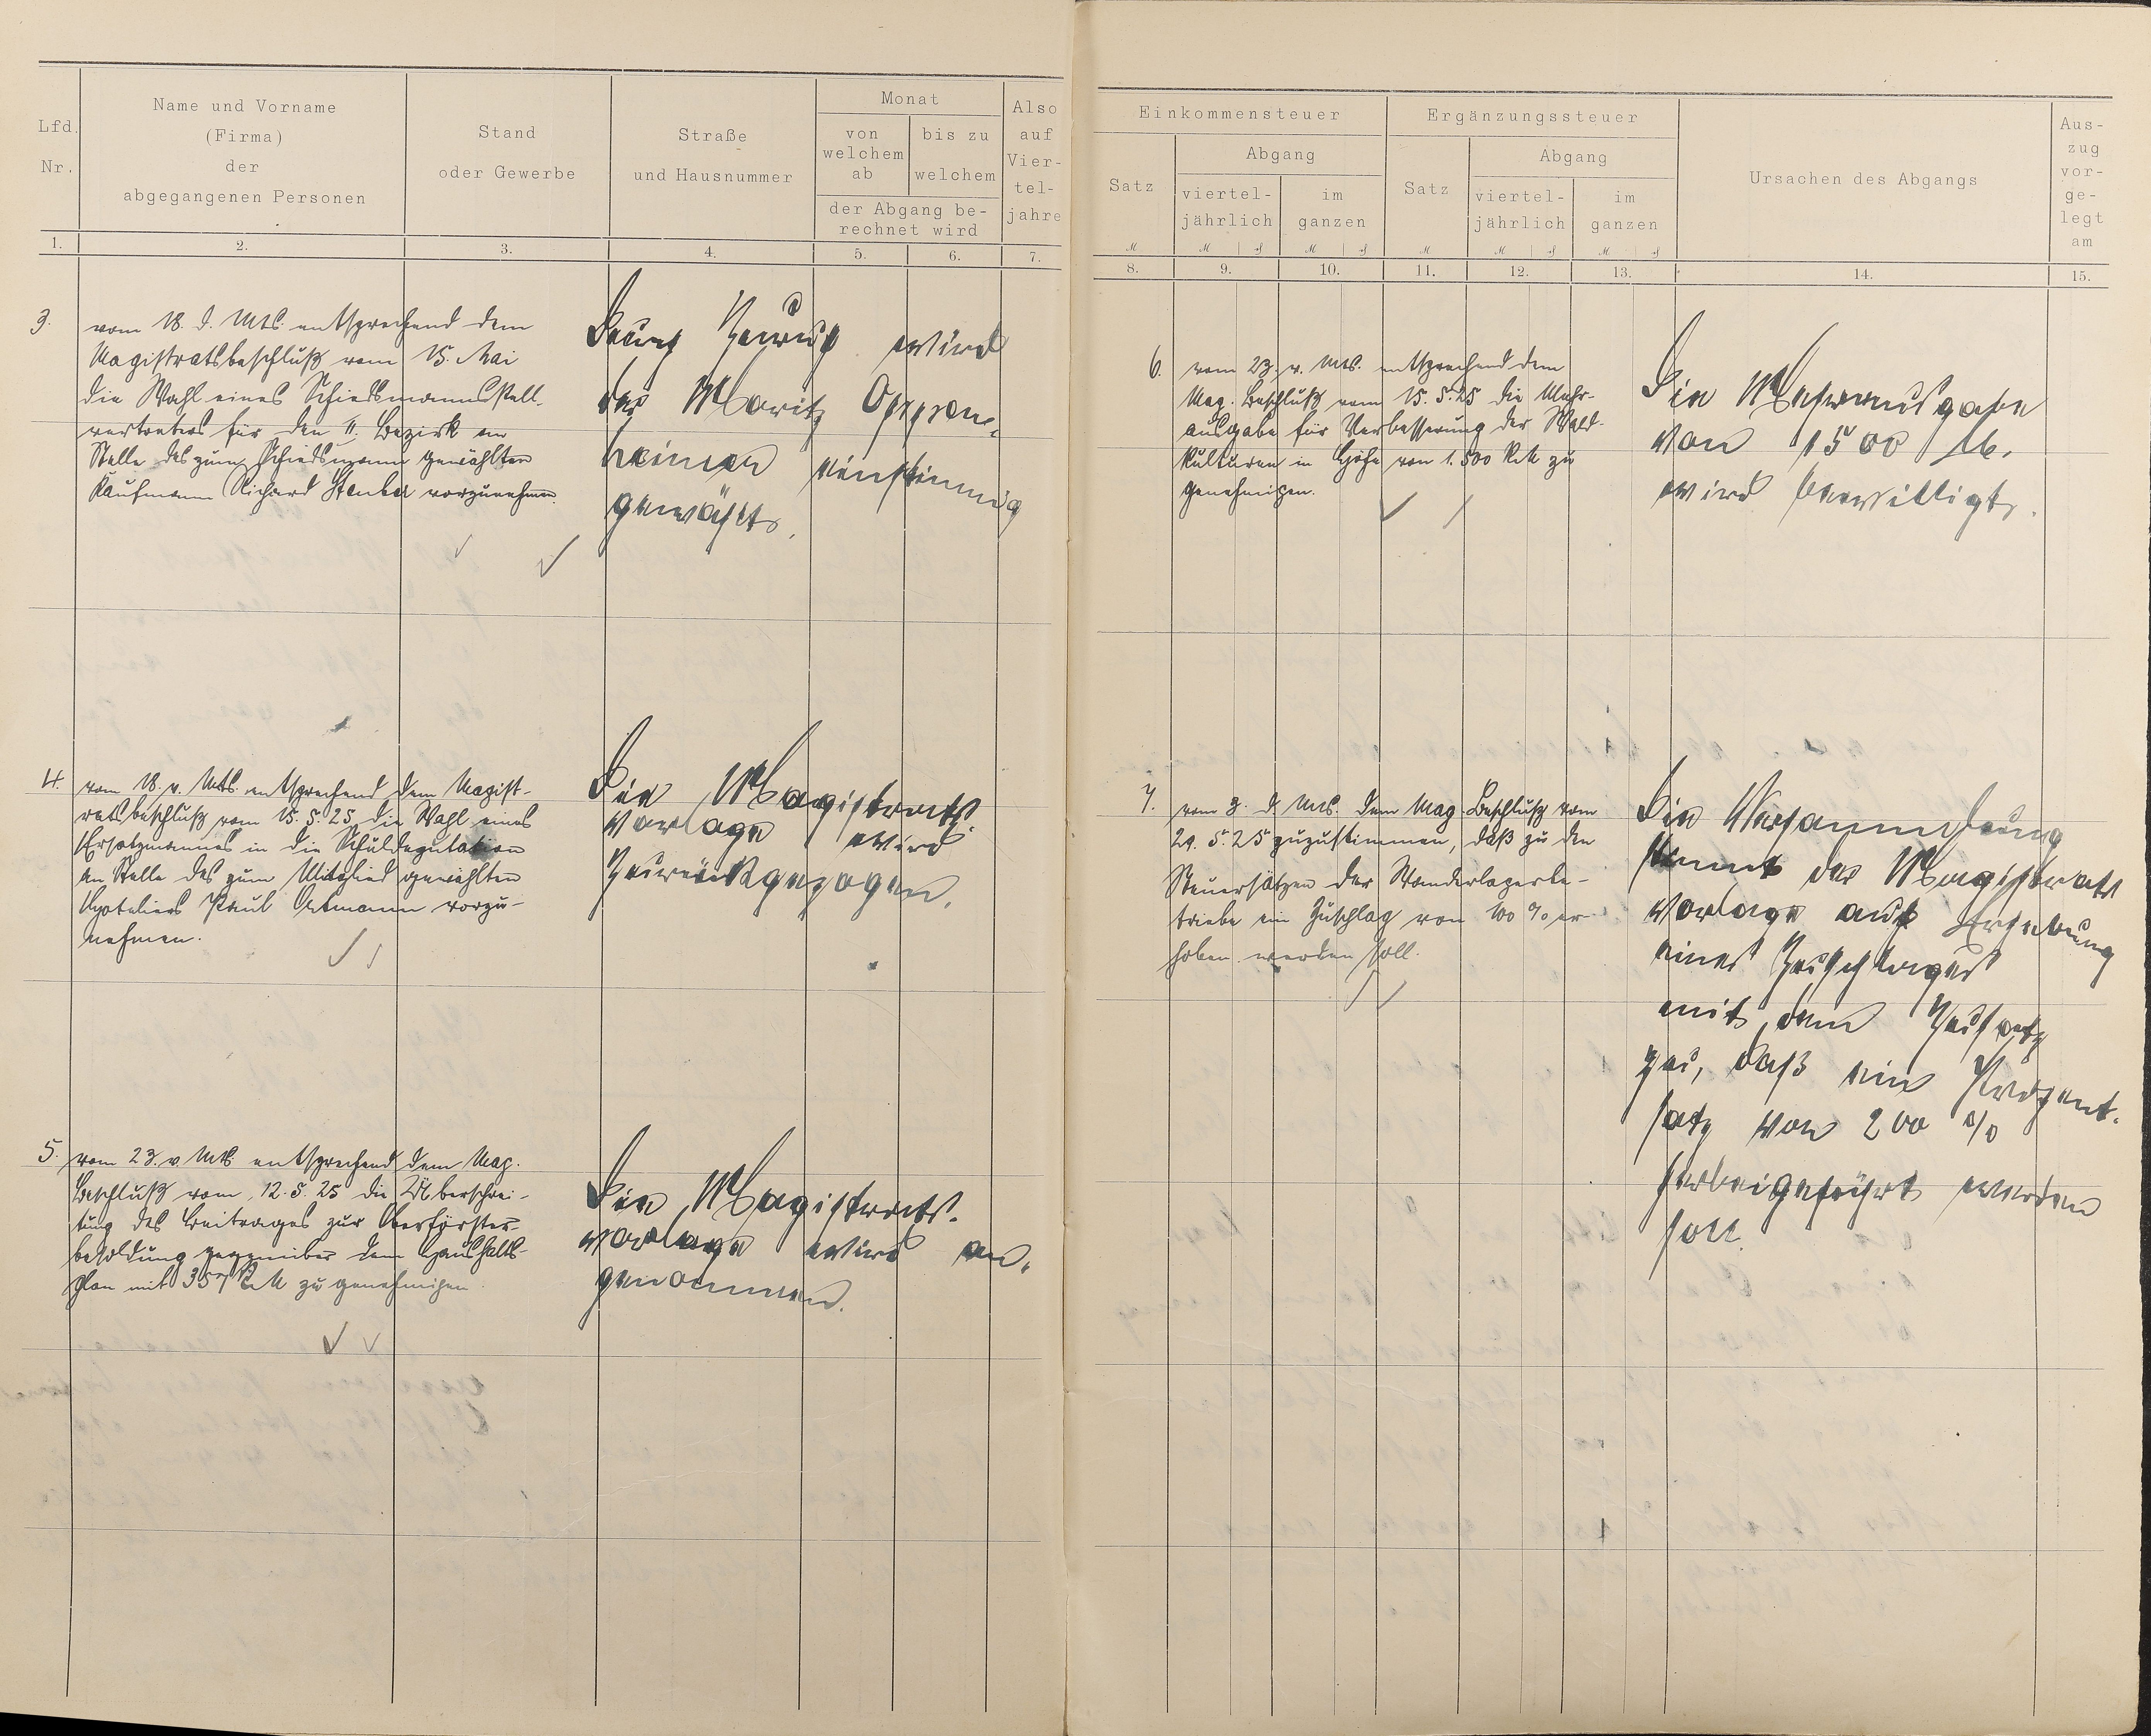 Lfd.
Nr.
Name und Vorname
(Firma)
der
abgegangenen Personen
Stand
oder Gewerbe
Straße
und Hausnummer
Monat
von
welchem
ab
bis zu
welchem
der Abgang be-
rechnet wird
Also
auf
Vier-
tel-
jahre
1.
2.
3.
4.
5.
6.
7.
3.
vom 18. d. Mts. entsprechend dem
Magistratsbeschluß vom 15. Mai
die Wahl eines Schiedsmannsstell-
vertreters für den II. Bezirk an
Stelle des zum Schiedsmann gewählten
Kaufmann Richard vorzunehmen.
Durch Zuruf wird
der Moritz Oppen-
heimer einstimmig
gewählt.
4.
vom 18. v. Mts. entsprechend dem Magist-
ratsbeschluß vom 15. 5. 25 die Wahl eines
Ersatzmannes in die Schuldeputation
an Stelle des zum Mitglied gewählten
Hoteliers Paul Ortmann vorzu-
nehmen.
Die Magistrats-
vorlage wird
zurückgezogen.
5.
vom 23. v. Mts. entsprechend dem Mag.
Beschluß vom 12. 5. 25 die Überschrei-
tung des Beitrages zur Oberförster-
besoldung gegenüber dem Haushalts-
plan mit 357 RM zu genehmigen.
Die Magistrats-
vorlage wird an-
genommen.
Einkommensteuer
Satz
Abgang
viertel-
jährlich
im
ganzen
Ergänzungssteuer
Satz
Abgang
viertel-
jährlich
im
ganzen
Ursachen des Abgangs
Aus-
zug
vor-
ge-
legt
am
8.
9.
10.
11.
12.
13.
14.
15.
6.
vom 23. v. Mts. entsprechend dem
Mag. Beschluß vom 15. 5. 25 die Mehr-
ausgabe für Verbesserung der Wald-
kulturen in Höhe von 1.500 RM zu
genehmigen.
Die Mehrausgabe
von 1500 M.
wird bewilligt.
7.
vom 3. d. Mts. dem Mag. Beschluß vom
29. 5. 25 zuzustimmen, daß zu den
Steuersätzen der Wanderlagerbe-
triebe ein Zuschlag von 100 % er-
hoben werden soll.
Die Versammlung
stimmt der Magistrats
vorlage auf Erhebung
eines Zuschlages
mit dem Zusatz
zu, daß ein Prozent-
satz von 200 %
herbeigeführt werden
soll.